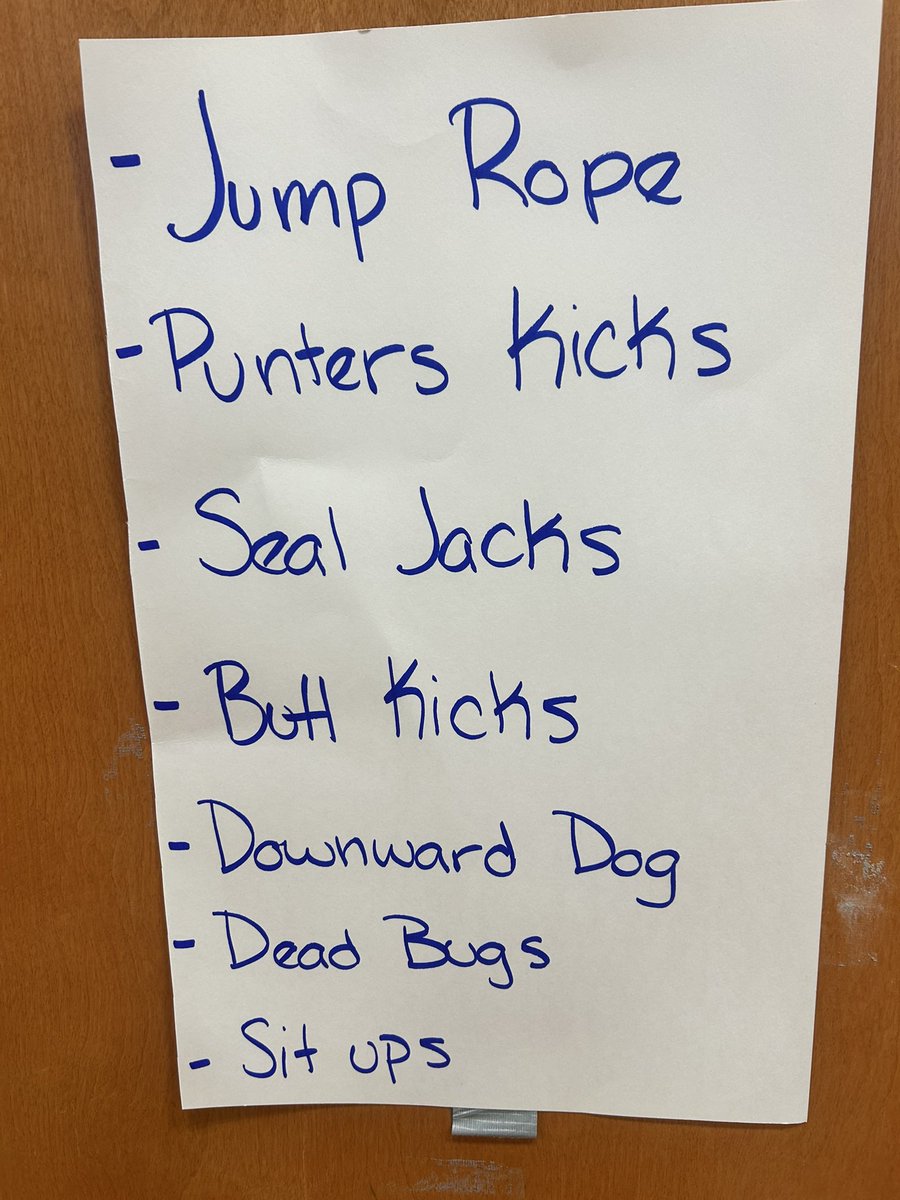 - Jump Rope
- Punters Kicks
- Seal Jacks
- Butt Kicks
- Downward Dog
- Dead Bugs
- Sit ups